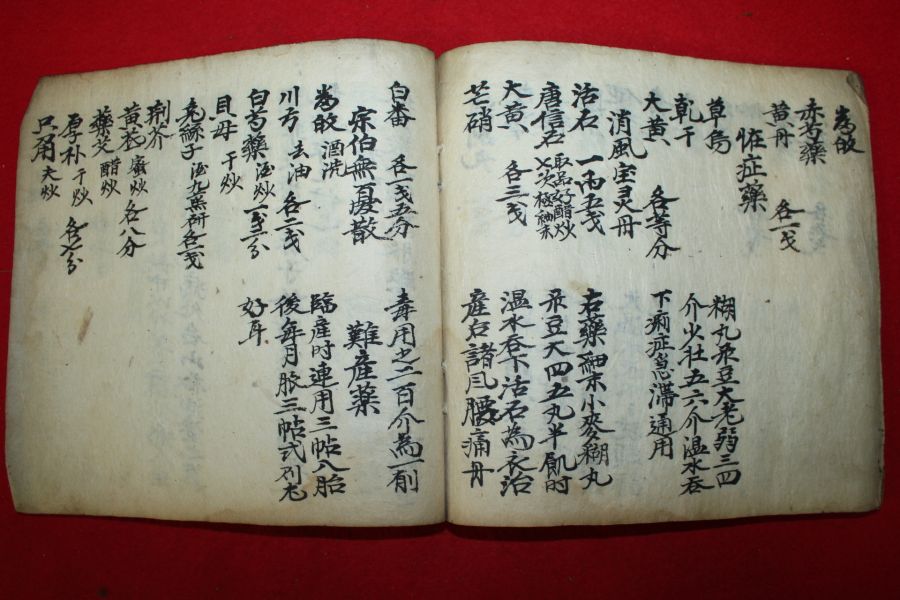 當皈
赤芍藥
黃丹 各一戔
疟症藥
草烏
乾干
大黃 各等分
糊丸彔豆大老弱三四
介少壮五六介温水吞
下痢症急滯通用
消風宝灵丹
活石 一兩五戔
唐信石 取品好醋炒七次極細末
大黃 各三戔
芒硝
右藥細末小麥糊丸
彔豆大四五丸半飢时
温水吞下活石為衣治
産后諸风腰痛丹
白番 各一戔五分
毒用之二百介為一剤
宗伯無憂散
難産藥
當皈 酒洗
川芎 去油 各一戔
白芍藥 酒炒 一戔二分
貝母 干炒
兔絲子 酒丸蒸研 各一戔
荊芥
黃芪 蜜炒 各八分
藥艾 醋炒
厚朴 干炒 各七分
只角 夫炒
臨産时連用三帖八胎
後每月 三帖式列尤
好耳